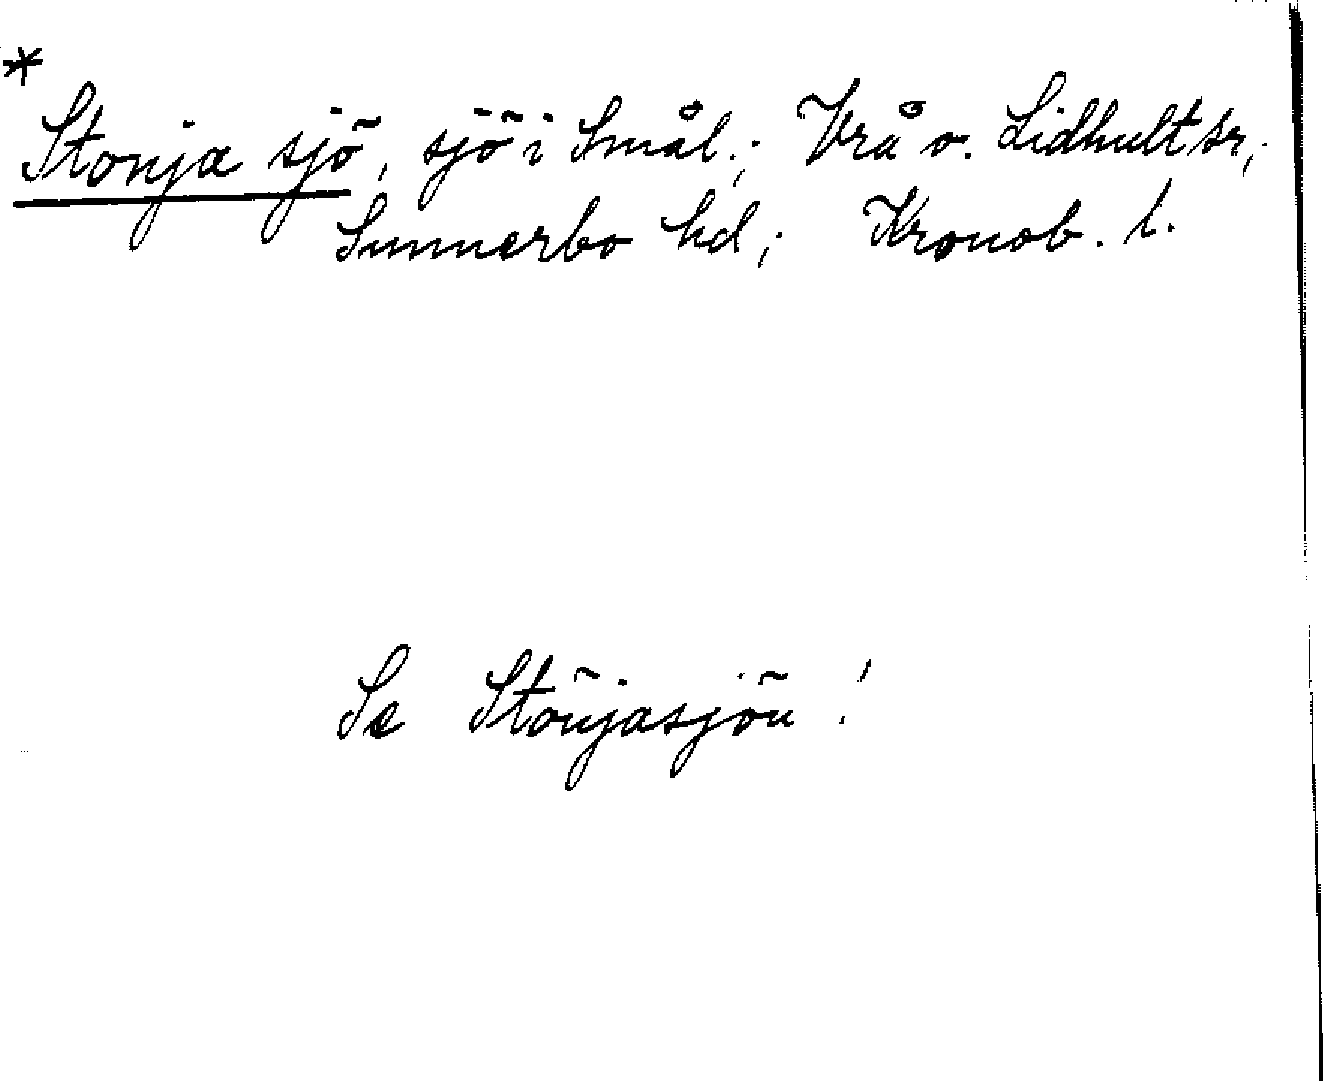 *
Stonja sjö, sjö i Smål.; Vrå o. Lidhult sr,;
Sunnerbo hd; Kronob. l.
Se Stönjasjön!